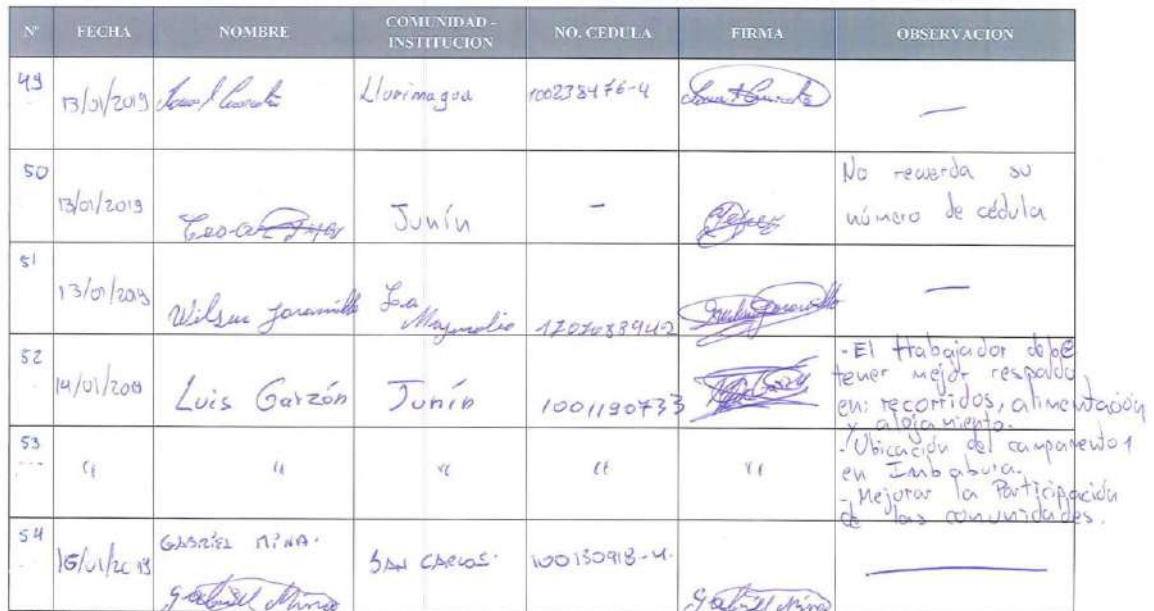 Nº FECHA NOMBRE COMUNIDAD - INSTITUCION NO. CEDULA FIRMA OBSERVACION
49 13/01/2019 Llurimagua 100238476-4 —
50 13/01/2019 Junín - No recuerda su
número de cédula
51 13/01/2019 Wilson Jaramillo La Magnolia —
52 14/01/2019 Luis Garzón Junín 1001190733 - El trabajador debe
tener mejor respaldo
en: recorridos, alimentación
y alojamiento.
53 " " " " " - Ubicación del campamento 1
en Imbabura.
- Mejorar la Participación
de las comunidades.
54 16/01/2019 GABRIEL MINA. SAN CARLOS. 100130918-4. —
Gabriel Mina Gabriel Mina